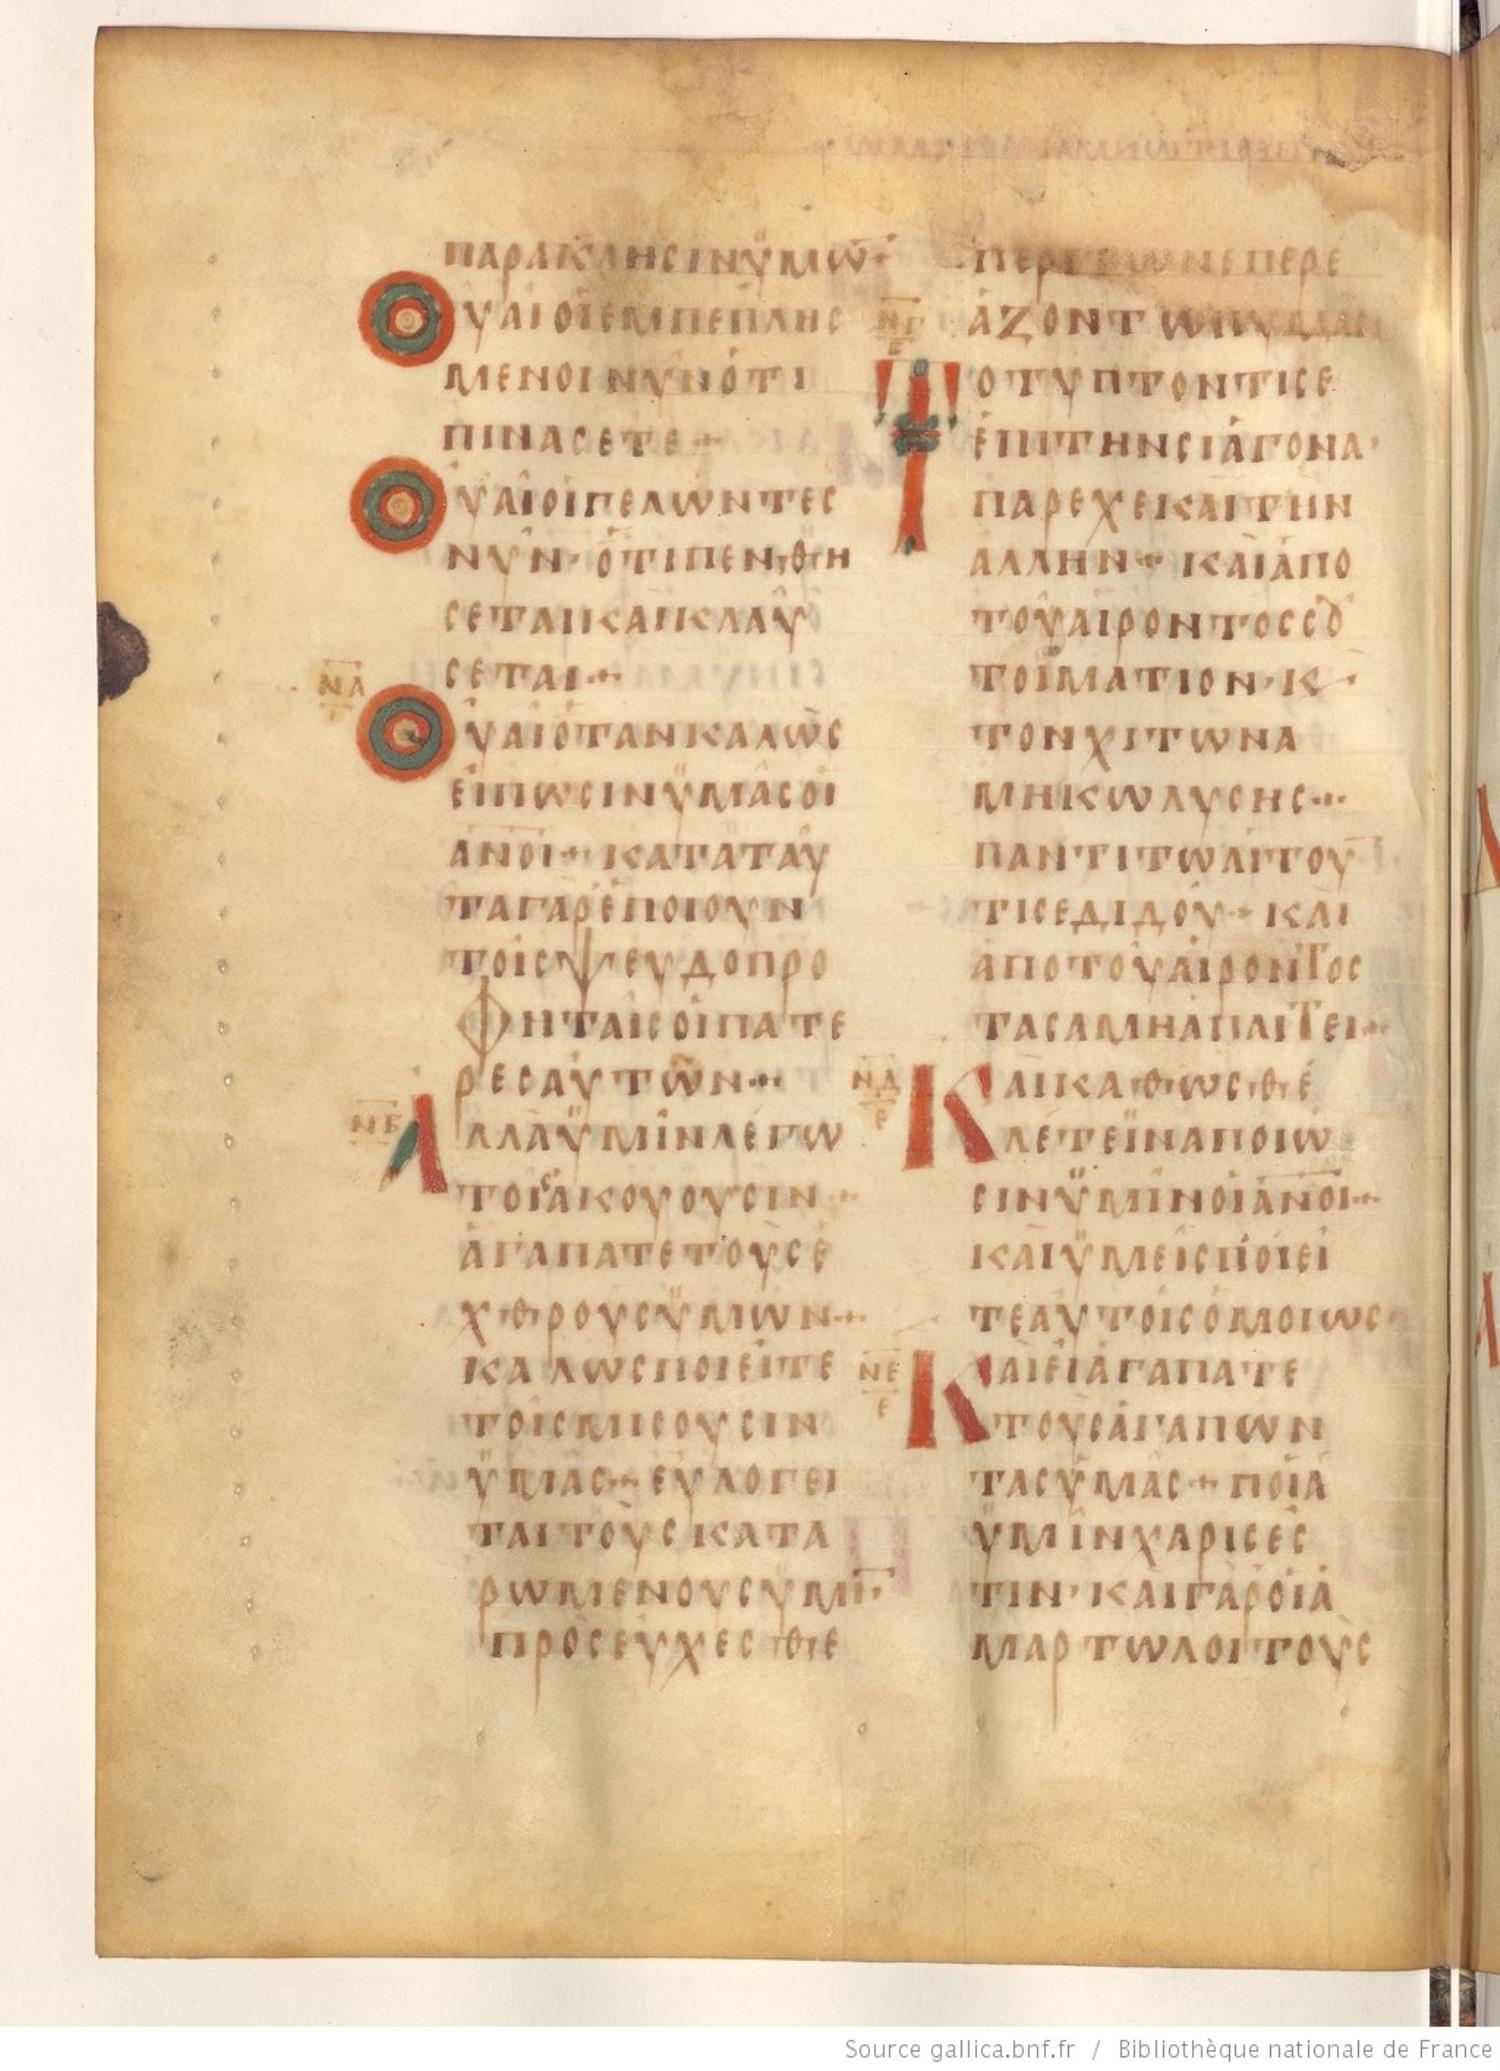 παρακλησινϋμῶ
Οὐάιοἱεμπεπλης
μενοινῦνὁτι
πινασετε
Οὐάιοἱγελῶντες
νῦν·ὁτιπενθη
σεταικαὶκλαύ
σεται
ΝΑ
Οὐάιὁτανκαλῶς
ἐίπωσινϋμᾶσοἱ
ἀνοι·κατατάυ
ταγὰρἐποιουν
τοῖςψευδοπρο
φηταῖςοἱπατε
ρεσαὐτῶν
ΝΒ
Αλλὰϋμῖνλέγω
τοῖσἀκούουσιν
ἀγαπατετοὺσἐ
χθρουσϋμῶν
καλωσποιεῖτε
τοῖσμισουσιν
ϋμᾶς·ἐυλογει
ταιτοὺσκατα
ρωμενουσϋμῖ
πρὸσἐύχεσθε
περιτῶνεπερε
ἀζοντων
ΝΓ
Ε
Τοτυπτοντισε
ἐπιτηνσιάγονα·
παρεχεκαὶτὴν
ἀλλην·καὶἀπο
τοῦαιροντοςσȣ
τοϊματιον·κ
τονχιτωνα
μηκωλυσης
παντιτωαιτου
τισεδιδου·και
ἀποτοῦαίροντος
τασαμηἀπαιτει
ΝΔ
Ε
Καὶκαθωσθέ
λέτεϊναποιώ
σινϋμῖνοἱἀνοι
καὶϋμεῖσποίει
τεαὐτοῖσὁμοιως
ΝΕ
Ε
Καὶεἰἀγαπατε
τοὺσἀγαπων
τασϋμᾶς·ποία
ϋμῖνχαρισἐς
τιν·καὶγὰροἱἁ
μαρτωλοιτοὺς
Source gallica.bnf.fr / Bibliothèque nationale de France